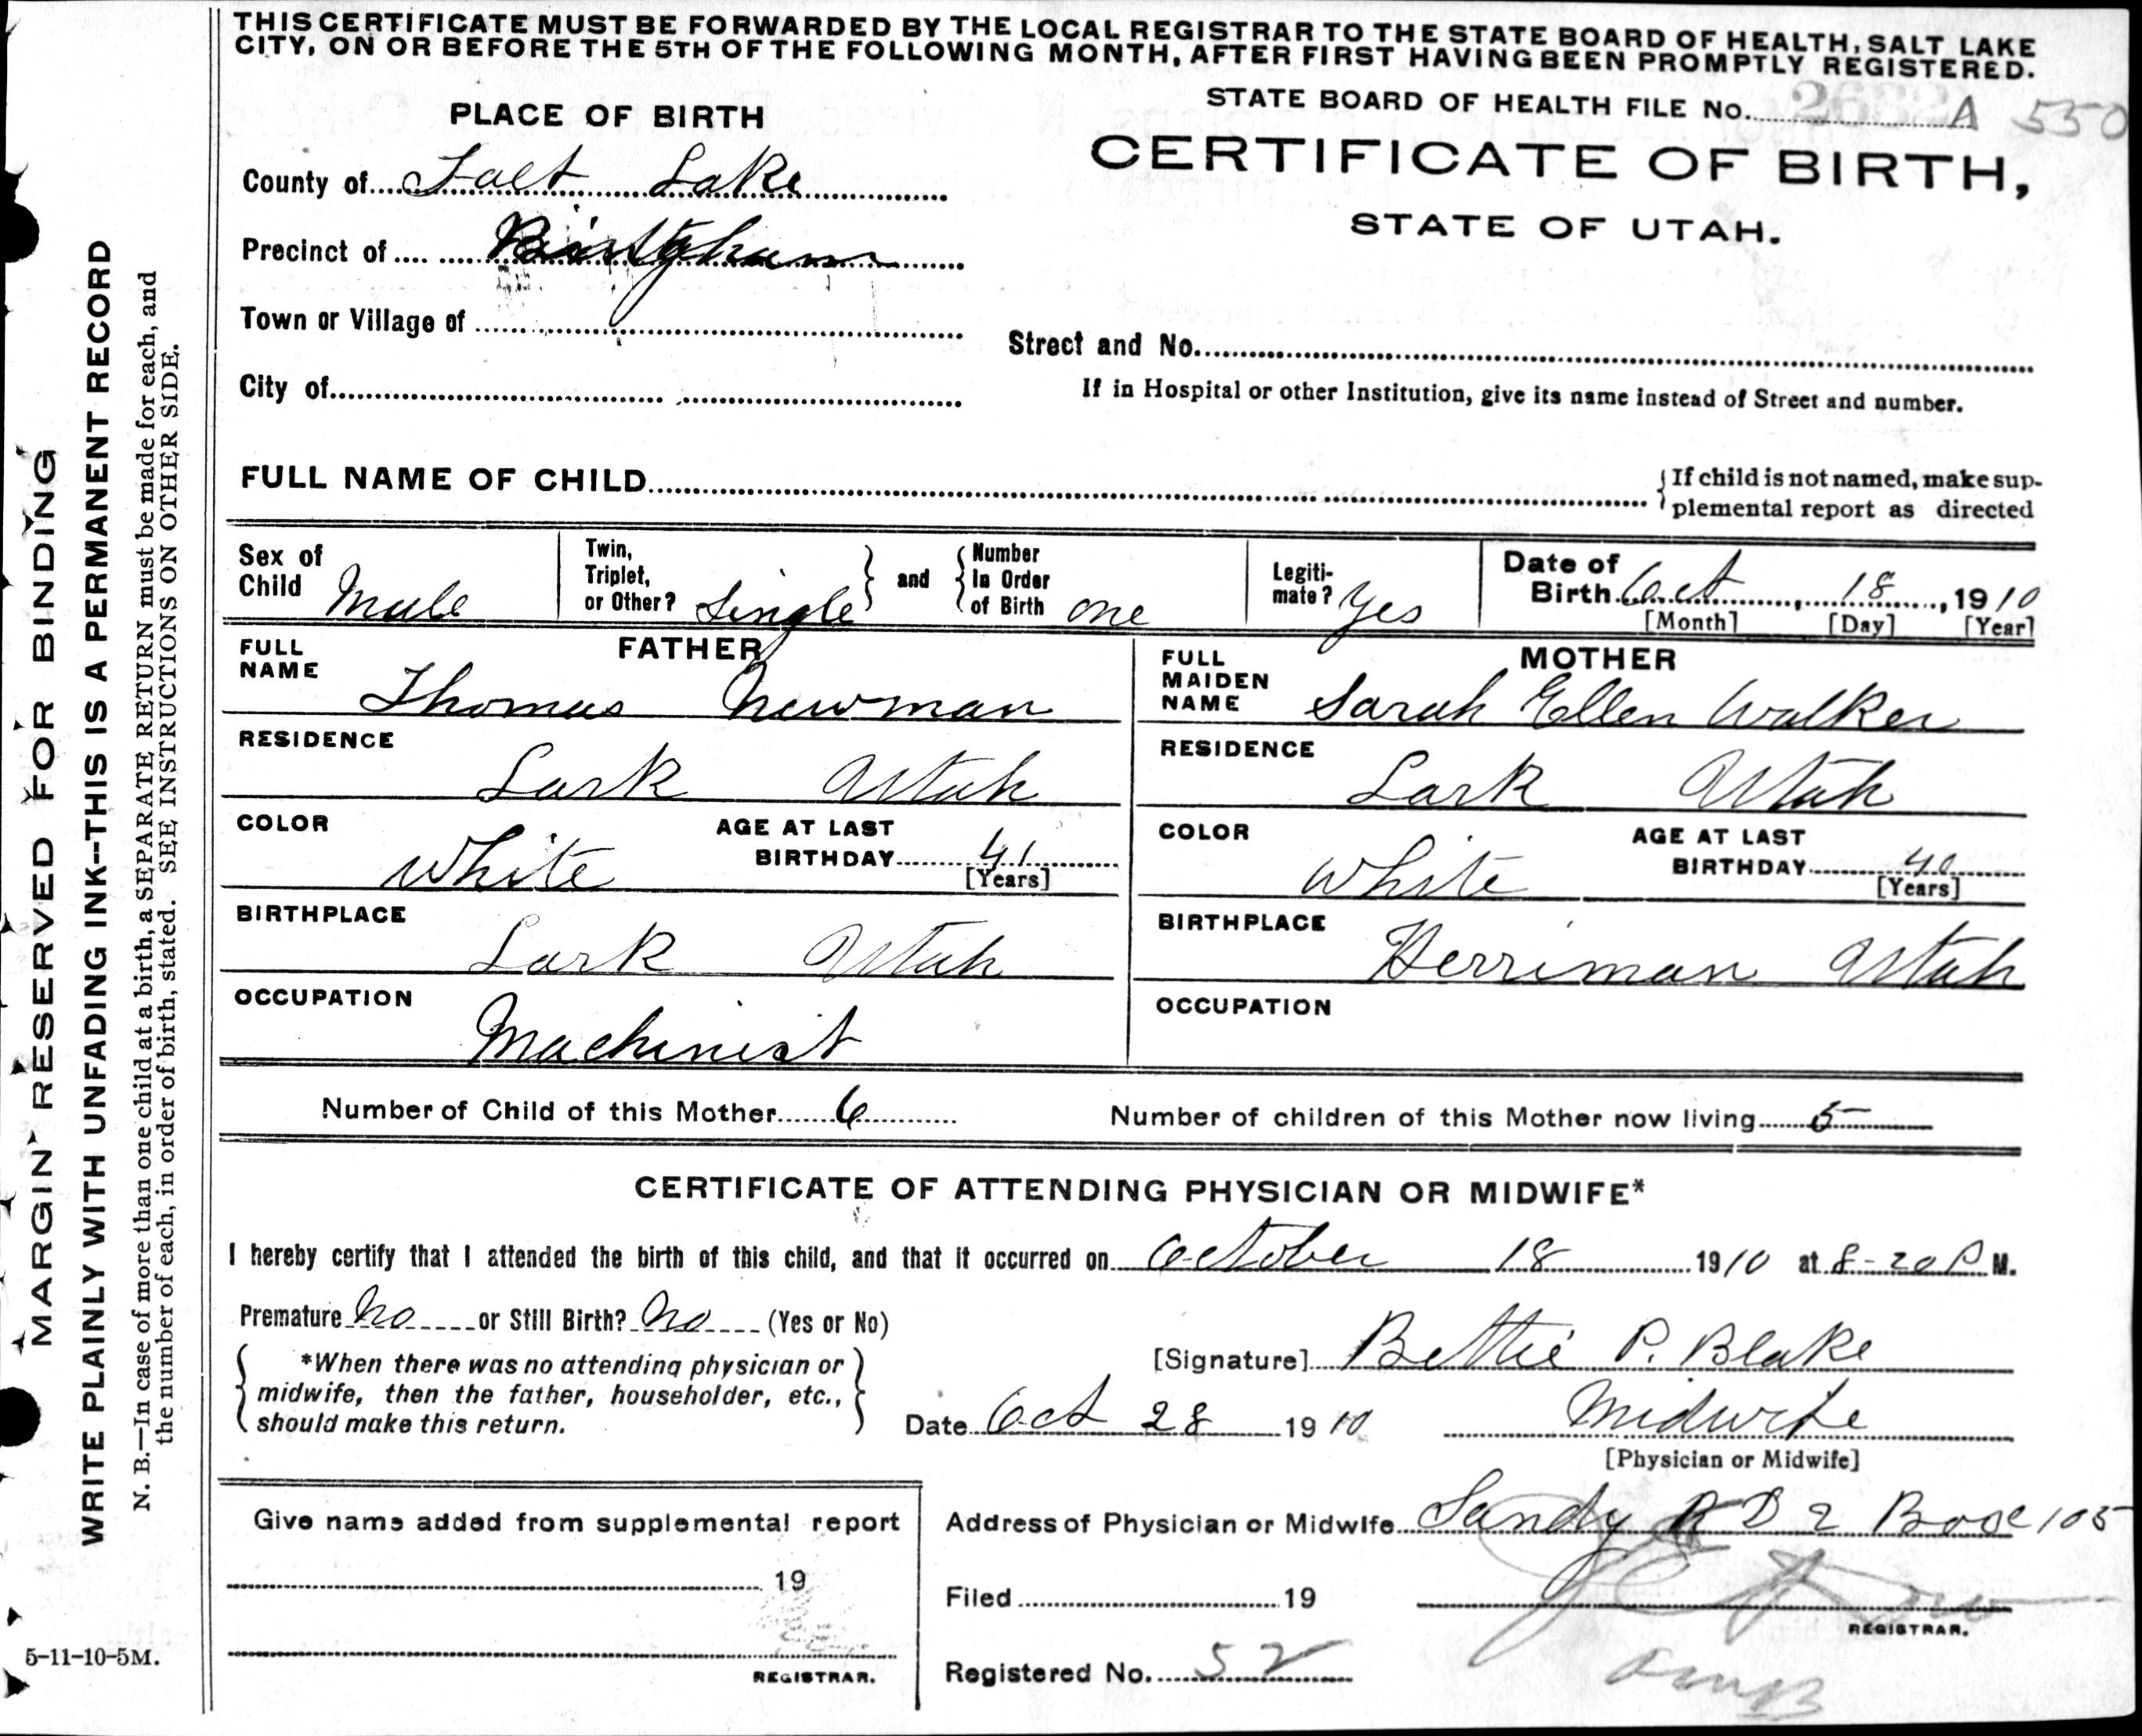 THIS CERTIFICATE MUST BE FORWARDED BY THE LOCAL REGISTRAR TO THE STATE BOARD OF HEALTH, SALT LAKE
CITY, ON OR BEFORE THE 5TH OF THE FOLLOWING MONTH, AFTER FIRST HAVING BEEN PROMPTLY REGISTERED.
STATE BOARD OF HEALTH FILE No. A 550
PLACE OF BIRTH
CERTIFICATE OF BIRTH,
STATE OF UTAH.
County of Salt Lake
Precinct of Bingham
Town or Village of
Street and No.
City of
If in Hospital or other Institution, give its name instead of Street and number.
FULL NAME OF CHILD
If child is not named, make sup-
plemental report as directed
Sex of Child Male
Twin, Triplet, or Other? Single and Number In Order of Birth one
Legiti-mate? Yes
Date of Birth Oct 18, 1910
[Month] [Day] [Year]
FATHER
FULL NAME Thomas Newman
RESIDENCE Lark Utah
COLOR White AGE AT LAST BIRTHDAY 41
[Years]
BIRTHPLACE Lark Utah
OCCUPATION Machinist
MOTHER
FULL MAIDEN NAME Sarah Ellen Walker
RESIDENCE Lark Utah
COLOR White AGE AT LAST BIRTHDAY 40
[Years]
BIRTHPLACE Herriman Utah
OCCUPATION
Number of Child of this Mother 6 Number of children of this Mother now living 5
CERTIFICATE OF ATTENDING PHYSICIAN OR MIDWIFE*
I hereby certify that I attended the birth of this child, and that it occurred on October 18 1910 at 8-20 P M.
Premature No or Still Birth? No (Yes or No)
*When there was no attending physician or
midwife, then the father, householder, etc.,
should make this return.
[Signature] Bettie P. Blake
Date Oct 28 1910 Midwife
[Physician or Midwife]
Give name added from supplemental report
19
REGISTRAR.
Address of Physician or Midwife Sandy R D 2 Box 105
Filed 19
REGISTRAR.
Registered No. 52
MARGIN RESERVED FOR BINDING
WRITE PLAINLY WITH UNFADING INK--THIS IS A PERMANENT RECORD
N. B.—In case of more than one child at a birth, a SEPARATE RETURN must be made for each, and
the number of each, in order of birth, stated. SEE INSTRUCTIONS ON OTHER SIDE.
5-11-10-5M.